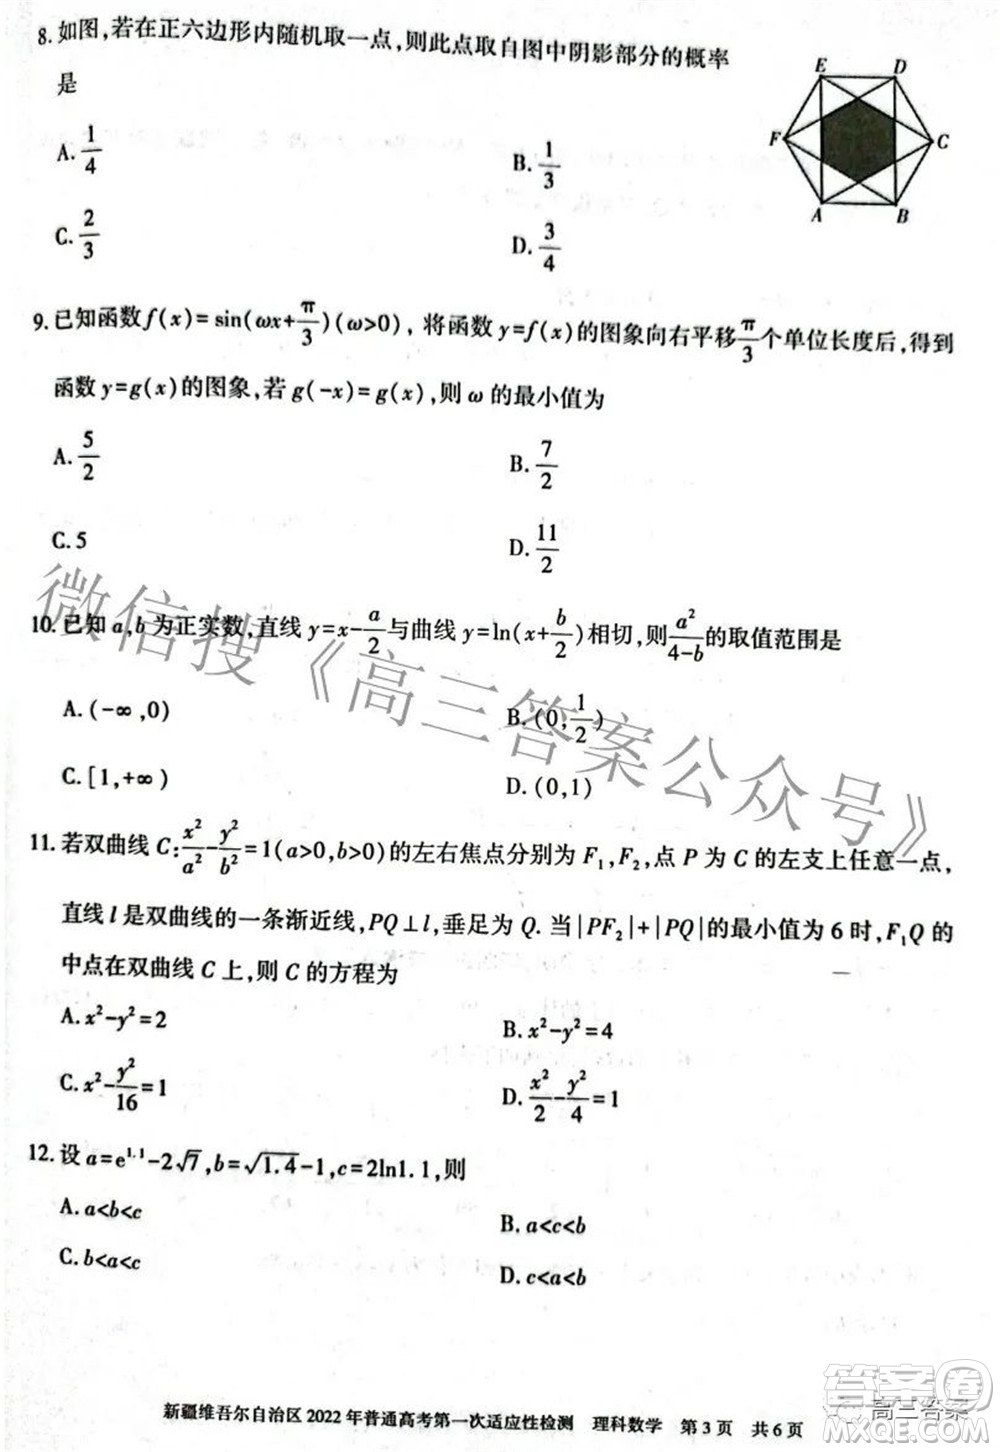 8. 如图,若在正六边形内随机取一点,则此点取自图中阴影部分的概率
是
A. 1/4
B. 1/3
C. 2/3
D. 3/4
E D
F C
A B
9. 已知函数f(x)=sin(ωx+π/3)(ω>0), 将函数y=f(x)的图象向右平移π/3个单位长度后,得到
函数y=g(x)的图象,若g(-x)=g(x),则ω的最小值为
A. 5/2
B. 7/2
C. 5
D. 11/2
10. 已知a,b为正实数,直线y=x-a/2与曲线y=ln(x+b/2)相切,则a²/(4-b)的取值范围是
A. (-∞,0)
B. (0,1/2)
C. [1,+∞)
D. (0,1)
11. 若双曲线C:x²/a²-y²/b²=1(a>0,b>0)的左右焦点分别为F₁,F₂,点P为C的左支上任意一点,
直线l是双曲线的一条渐近线,PQ⊥l,垂足为Q.当|PF₂|+|PQ|的最小值为6时,F₁Q的
中点在双曲线C上,则C的方程为
A. x²-y²=2
B. x²-y²=4
C. x²-y²/16=1
D. x²/2-y²/4=1
12. 设a=e^1.1-2√7,b=√1.4-1,c=2ln1.1,则
A. a<b<c
B. a<c<b
C. b<a<c
D. c<a<b
新疆维吾尔自治区2022年普通高考第一次适应性检测 理科数学 第3页 共6页
微信搜《高三答案公众号》
高三答案
答案圈
MXQE.COM